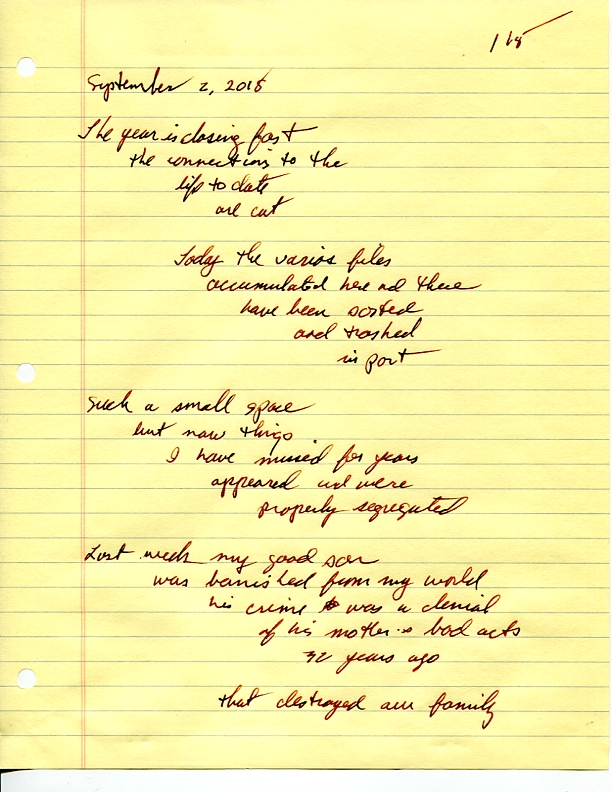 1/18
September 2, 2018
The year is closing fast
the connections to the
life to date
are cut
Today the varios files
accumulated here and there
have been sorted
and trashed
in part
Such a small space
but now things
I have missed for years
appeared and were
properly segregated
Last week my good son
was banished from my world
his crime was a denial
of his mother's bad acts
32 years ago
that destroyed our family